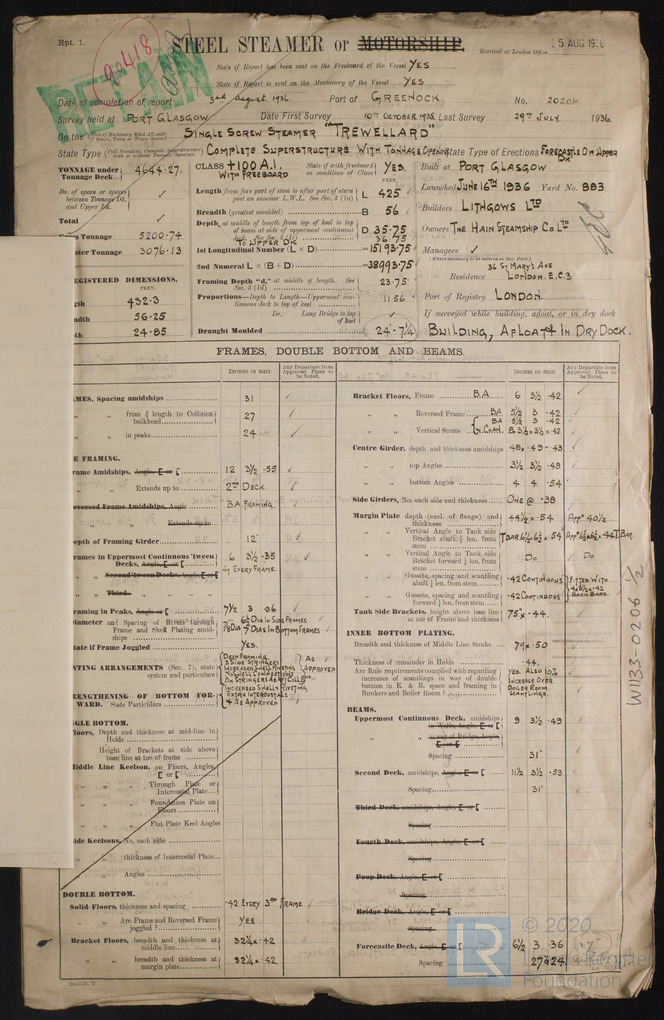 Rpt. 1.
90418
RETAIN
STEEL STEAMER or MOTORSHIP.
5 AUG 1936
Received at London Office
State if Report has been sent on the Freeboard of the Vessel YES
State if Report is sent on the Machinery of the Vessel YES
Date of completion of report 3rd August, 1936. Port of GREENOCK. No. 20204.
Survey held at PORT GLASGOW Date First Survey 10TH OCTOBER, 1935 Last Survey 29TH JULY, 1936
On the SINGLE SCREW STEAMER "TREWELLARD"
State Type COMPLETE SUPERSTRUCTURE WITH TONNAGE OPENING State Type of Erections FORECASTLE ON UPPER DK
TONNAGE under Tonnage Deck 4644.27.
CLASS +100 A.1. WITH FREEBOARD
State if with freeboard as condition of Class YES.
Built at PORT GLASGOW
Launched JUNE 16TH 1936 Yard No. 883
Builders LITHGOWS LTD
Owners THE HAIN STEAMSHIP CO LTD
Managers ✓
(Where necessary to be entered in Reg. Book.)
36 ST MARY'S AVE
Residence LONDON. E.C.3
Port of Registry LONDON.
If surveyed while building, afloat, or in dry dock
BUILDING, AFLOAT & IN DRY DOCK.
Do. of space or spaces between Tonnage Dk. and Upper Dk. ✓
Total ✓
Tonnage 5200.74
ster Tonnage 3076.13
EGISTERED DIMENSIONS.
FEET.
gth 432.3
adth 56.25
th 24.85
Length from fore part of stem to after part of stern post on summer L.W.L. See Sec. 3 (1a) L 425
Breadth (greatest moulded) B 56
Depth, at middle of length from top of keel to top of beam at side of uppermost continuous deck. See Sec. 3 (1c) D 35.75
TO UPPER DK 36.75
1st Longitudinal Number (L × D) = 15193.75
2nd Numeral L × (B + D) = 38993.75
Framing Depth "d," at middle of length. See Sec. 3 (1d) 23.75
Proportions—Depth to Length—Uppermost continuous deck to top of keel 11.56
Do. Long Bridge to top of keel ✓
Draught Moulded 24'-7¼
FRAMES, DOUBLE BOTTOM AND BEAMS.
INCHES IN SHIP.
Any Departure from Approved Plans to be Noted.
AMES, Spacing amidships 31 ✓
" " from ⅗ length to Collision bulkhead 27 ✓
" " in peaks 24 ✓
E FRAMING.
rame Amidships, Angle, E or [ 12 3½ .55 ✓
" " Extends up to 2ND DECK.
eversed Frame Amidships, Angle B.A. FRAMING.
" " Extends up to
epth of Framing Girder 12" ✓
rames in Uppermost Continuous 'tween Decks, Angle, E or [ 6 3½ .35 ✓
" Second 'tween Decks, Angle, E or [ AT EVERY FRAME.
" Third
raming in Peaks, Angle or [ 7½ 3 .36 ✓
iameter and Spacing of Rivets through Frame and Shell Plating amidships ⅞ DIA 6½ DIAS IN SIDE FRAMES 7 DIAS IN BOTTOM FRAMES ✓
tate if Frame Joggled YES.
NTING ARRANGEMENTS (Sec. 7), state system and particulars
DEEP FRAMING
3 SIDE STRINGERS
INCREASED SHELL RIVETING
AS APPROVED
RENGTHENING OF BOTTOM FORWARD. State Particulars
INCREASED SHELL RIVETING
EXTRA INTERCOSTALS
& AS APPROVED
NGLE BOTTOM.
loors, Depth and thickness at mid-line in Holds
Height of Brackets at side above base line at toe of frame
iddle Line Keelson, on Floors, Angles, E or [
" " Through Plate or Intercostal Plate
" " Foundation Plate on Floors
" " Flat Plate Keel Angles
ide Keelsons, No. each side
" " thickness of Intercostal Plate
" " Angles
DOUBLE BOTTOM.
Solid Floors, thickness and spacing .42 EVERY 3RD FRAME
" " Are Frame and Reversed Frame joggled? YES.
Bracket Floors, breadth and thickness at middle line 32¼ × .42 ✓
" " breadth and thickness at margin plate 32¼ × .42 ✓
INCHES IN SHIP.
Any Departure from Approved Plans to be Noted.
Bracket Floors, Frame B.A. 6 3½ .42 ✓
" " Reversed Frame B.A. 5½ 3 .42
" " Vertical Struts BA 5½ 3 .42
& CHAN. 8 × 3½ × 3½ × .42
Centre Girder, depth and thickness amidships 48 × .49-.43 ✓
" " top Angles 3½ 3½ .48
" " bottom Angles 4 4 .54
Side Girders, No. each side and thickness ONE @ .38
Margin Plate depth (excl. of flange) and thickness 44½ × .54 APPD 40½
" " Vertical Angle to Tank side Bracket abaft ¼ len. from stem T BAR 6½ × 6½ × .54 APPD 6½ × 6½ × .44 T. BAR.
" " Vertical Angle to Tank side Bracket forward ¼ len. from stem DO DO
" " Gussets, spacing and scantling abaft ¼ len. from stem .42 CONTINUOUS FITTED WITH
" " Gussets, spacing and scantling forward ¼ len. from stem .42 CONTINUOUS
Tank Side Brackets, height above base line at toe of Frame and thickness 75" × .44. ✓
INNER BOTTOM PLATING.
Breadth and thickness of Middle Line Strake 79 × .50 ✓
Thickness of remainder in Holds .44. ✓
Are Rule requirements complied with regarding increases of scantlings in way of double bottom in E. & B. space and framing in Bunkers and Boiler Room? YES, ALSO 10% INCREASE OVER BOILER ROOM SCANTLINGS. ✓
BEAMS.
Uppermost Continuous Deck, amidships 9 3½ .49 ✓
in Wells, Angle, E or [
" " in way of Bridge, Angle, E or [
Spacing 31"
Second Deck, amidships, Angle, E or [ 11½ 3½ .53
Spacing 31"
Third Deck, amidships, Angle, E or [
Spacing
Fourth Deck, amidships, Angle, E or [
Spacing
Poop Deck, Angle, E or [
Spacing
Bridge Deck, Angle, E or [
Spacing
Forecastle Deck, Angle, E or [ 6½ 3 .36
Spacing 27 & 24
W1133-0206 ½
© 2020
LR
Lloyd's Register
Foundation